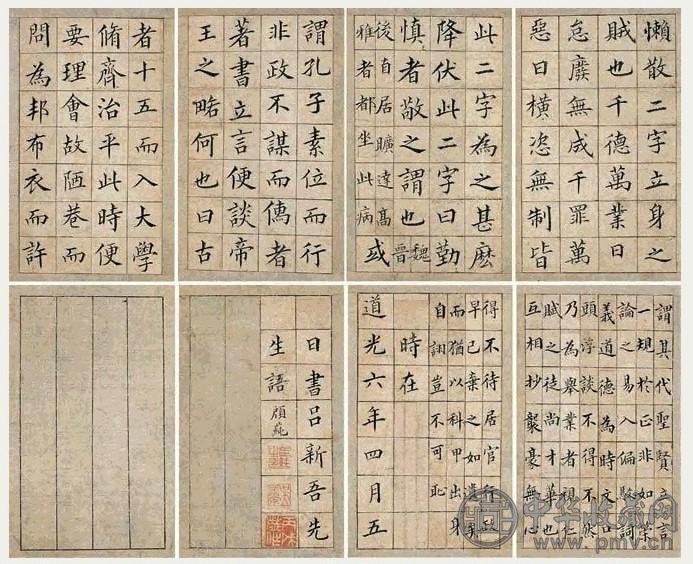 懶散二字立身之
賊也千德萬業日
怠廢無成千罪萬
惡日橫恣無制皆
此二字為之甚麽
降伏此二字曰勤
慎者敬之謂也魏晉
後自居曠達高
雅者都坐此病或
謂孔子素位而行
非政不謀而儒者
著書立言便談帝
王之略何也曰古
者十五而入大學
脩齊治平此時便
要理會故陋巷而
問為邦布衣而許
謂其代聖賢立言
一規於正非如策
論之易入偏駁詞
義道德為時文口
頭浮談不得不然
乃為舉業者視
賦之徒尚才華也
互相抄襲豪無心
得不待居官行政
早已棄之如
而猶以科甲出身
自詡豈不可恥
時在
道光六年四月五
日書呂新吾先
生語顧蒓
中华收藏网
www.pmv.cn